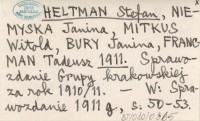 HELTMAN Stefan, NIE-
MYSKA Janina, MITKUS
Witold, BURY Janina, FRANC-
MAN Tadeusz 1911. Sprawo-
zdanie Grupy krakowskiej
za rok 1910/11. — W: Spra-
wozdanie 1911 g, s. 50-53.